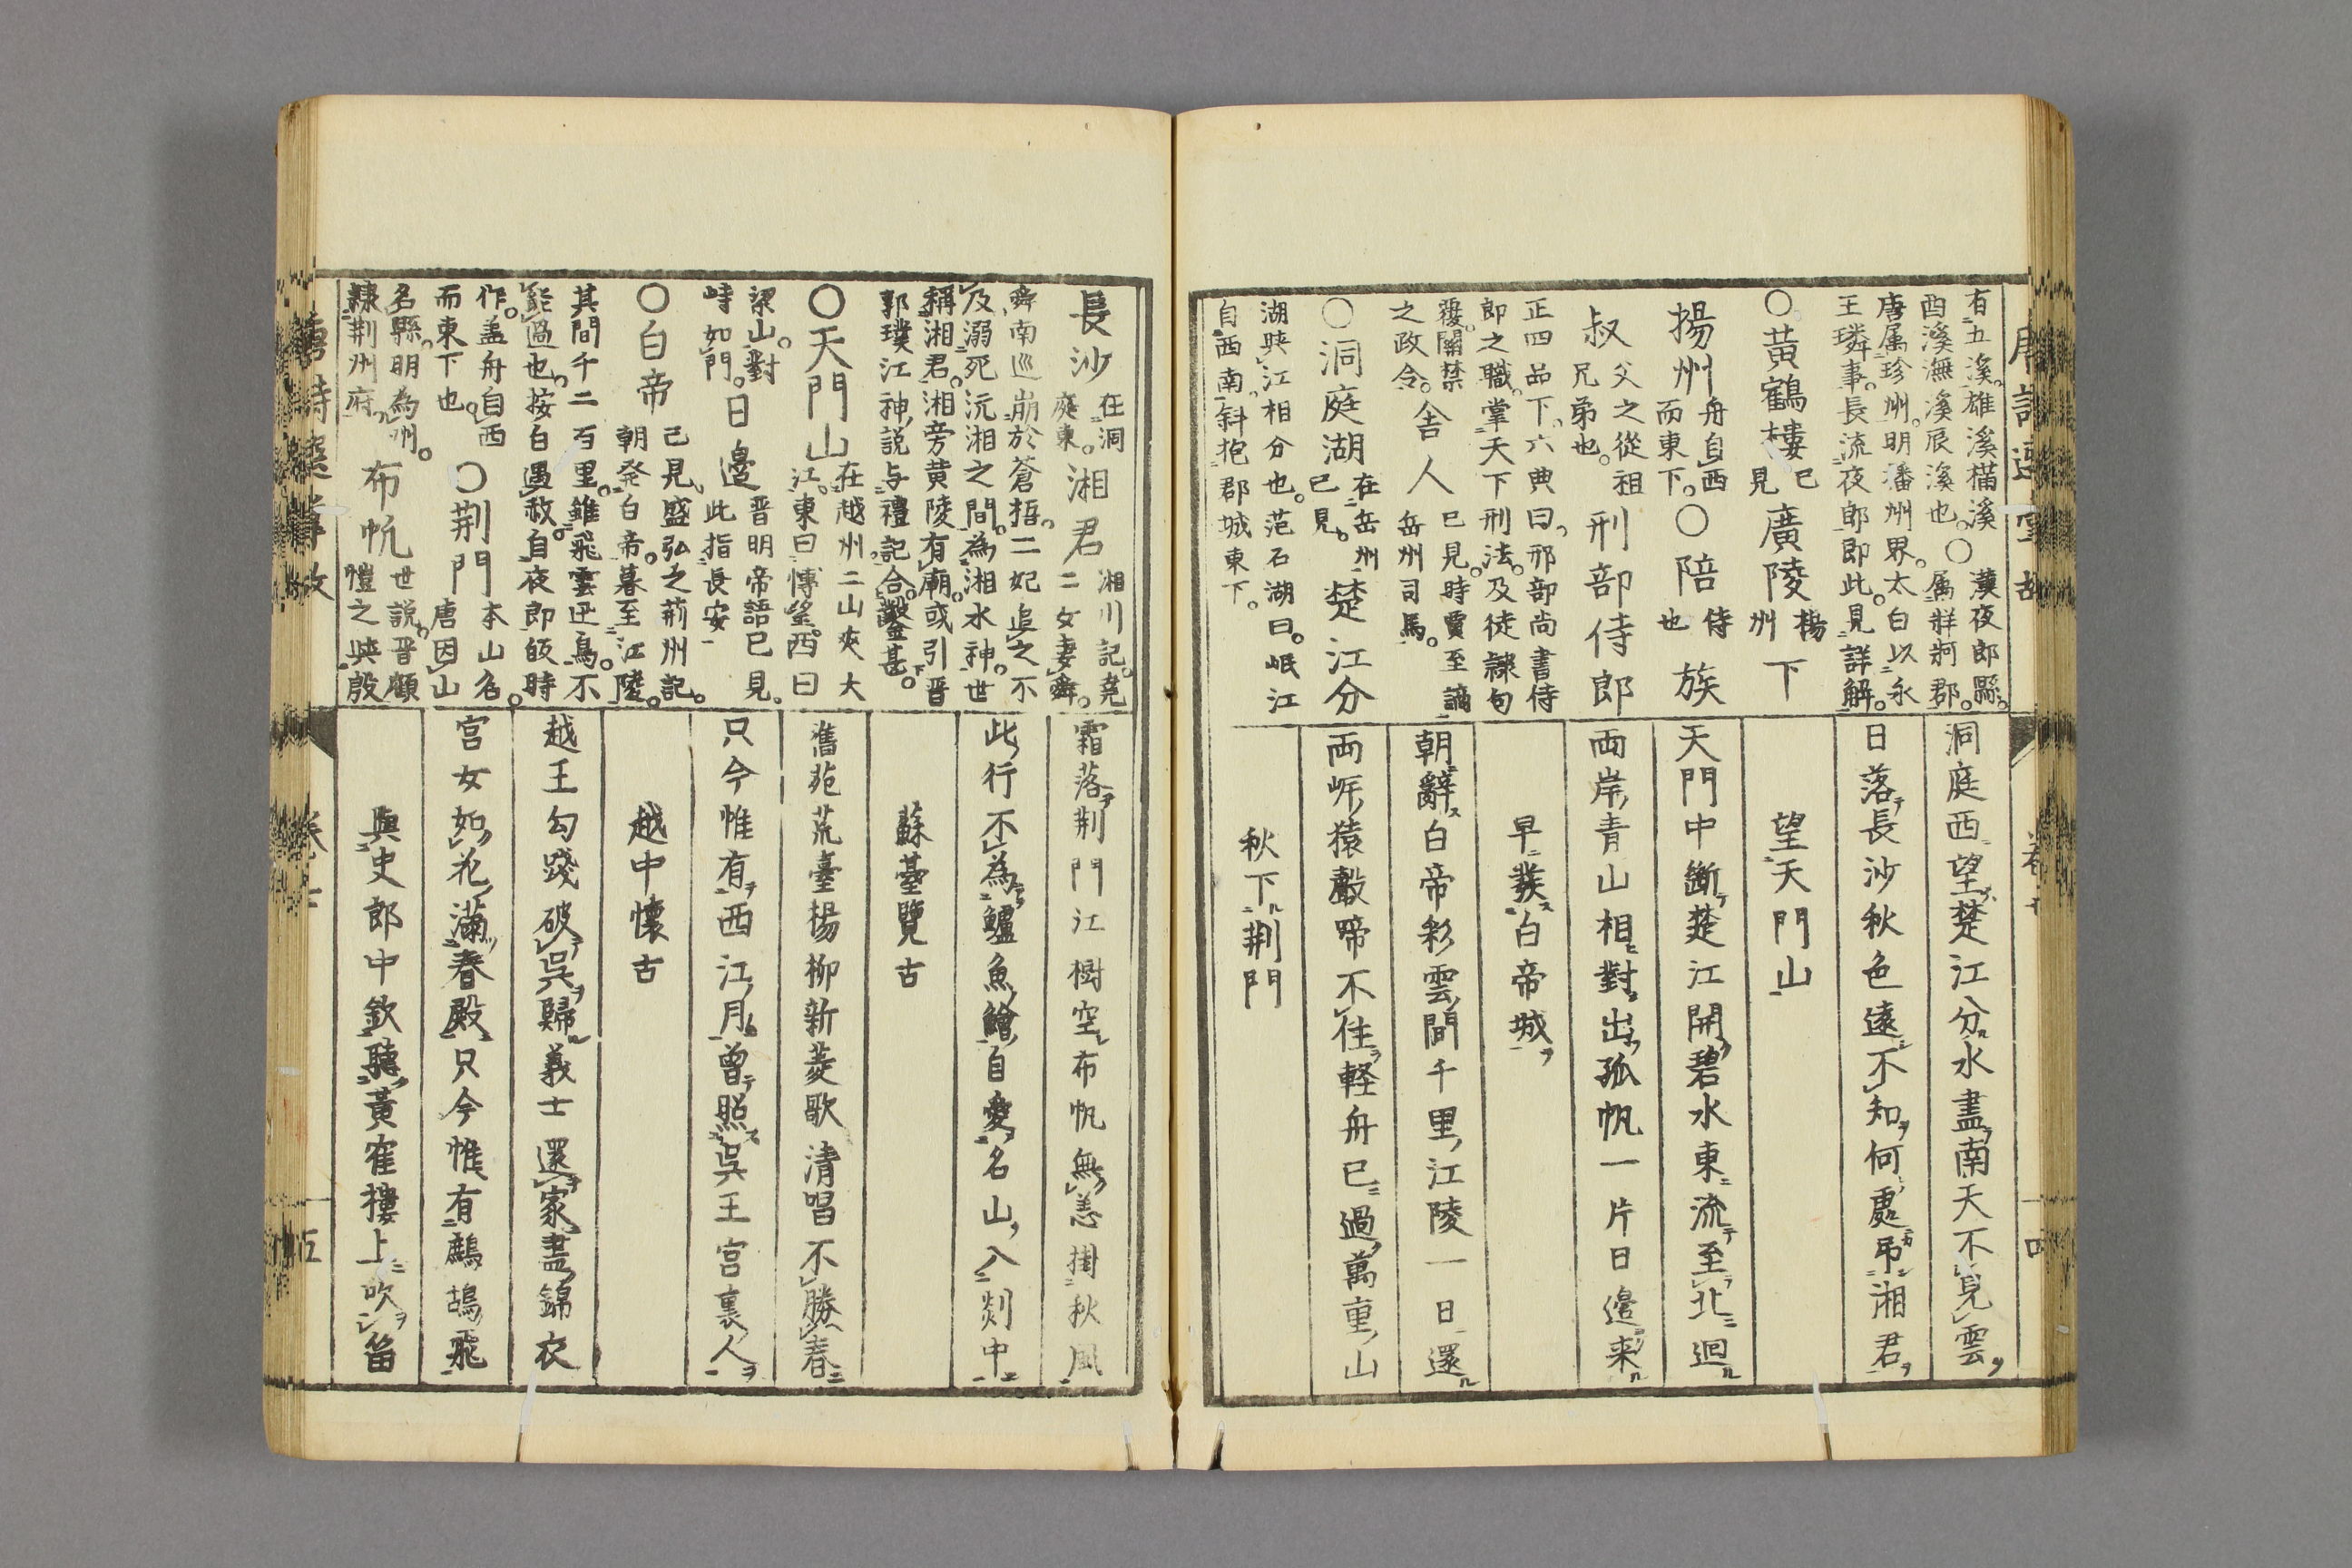 有五溪。雄溪樠溪
酉溪潕溪辰溪也。○
漢夜郎縣。
属牂牁郡。
唐属珍州。明潘州界。太白以永
王璘事。長流夜郎即此。見詳解。
○黃鶴樓 已見 廣陵 楊州 下
揚州 舟自西而東下。○陪 侍也 族
叔 父之從祖兄弟也。刑部侍郎
正四品下。六典曰。邢部尚書侍
郎之職。掌天下刑法。及徒隷句
覆。關禁之政令。舍人 已見。時賈至謫岳州司馬。
○洞庭湖 在岳州已見。楚江分
湖與江相分也。范石湖曰。岷江
自西南。斜抱郡城東下。
洞庭西望楚江分水盡南天不見雲
日落長沙秋色遠不知何處吊湘君
望天門山
天門中斷楚江開碧水東流至北迴
兩岸青山相對出孤帆一片日邉来
早發白帝城
朝辭白帝彩雲間千里江陵一日還
兩岍猿聲啼不住軽舟已過萬重山
秋下荆門
長沙 在洞庭東。湘君 湘川記。堯二女妻舜。
舜南巡崩於蒼梧。二妃追之不
及溺死沅湘之間。為湘水神。世
稱湘君。湘旁黄陵有廟。或引晋
郭璞江神説与禮記合鑿甚。
○天門山 在越州二山夾大江。東曰博望。西曰
梁山。對峙如門。日邉 晋明帝語已見。此指長安
○白帝 已見盛弘之荊州記。朝発白帝。暮至江陵。
其間千二百里。雖飛雲迅鳥。不
能過也。按白遇赦。自夜郎皈時
作。盖舟自西而東下也。○荆門 本山名。唐因山
名縣。明為州。隷荆州府。布帆 世説。晋顧愷之與殷
霜落荆門江樹空布帆無恙掛秋風
此行不為鱸魚鱠自愛名山入剡中
蘇臺覽古
舊苑荒臺楊柳新菱歌清唱不勝春
只今惟有西江月曾照呉王宮裏人
越中懷古
越王勾踐破呉歸義士還家盡錦衣
宮女如花滿春殿只今惟有鷓鴣飛
與史郎中欽聽黃寉樓上吹笛